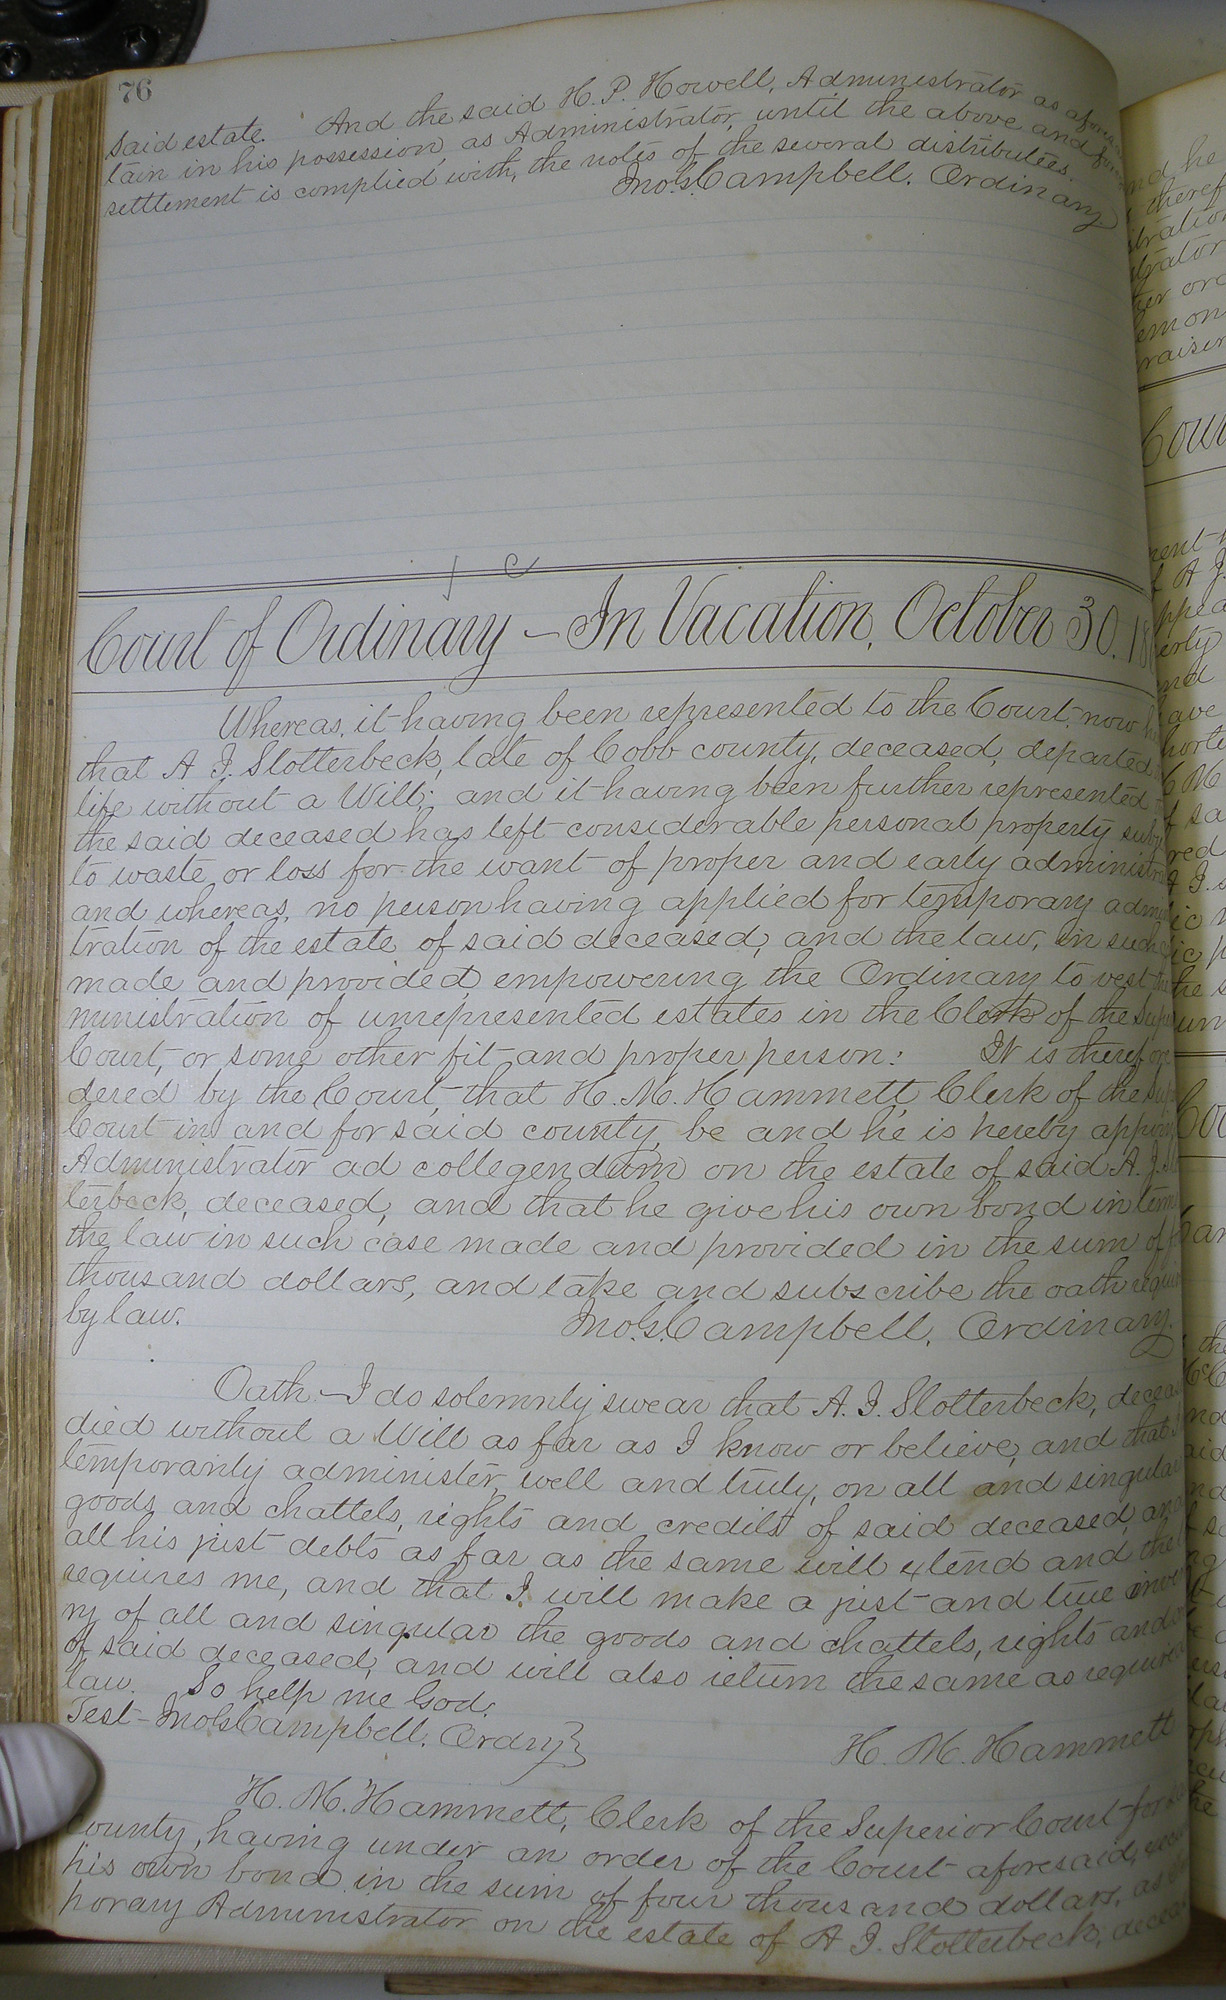 76
said estate. And the said H. P. Howell, Administrator as
tain in his possession, as Administrator, until the above and
settlement is complied with, the notes of the several distributees.
Jno. G. Campbell. Ordinary
Court of Ordinary – In Vacation, October 30. 18
Whereas, it having been represented to the Court now
that A J. Slotterbeck, late of Cobb county, deceased, departed
life without a Will; and it having been further represented
the said deceased has left considerable personal property
to waste or loss for the want of proper and early
and whereas, no person having applied for temporary
tration of the estate of said deceased, and the law, in such
made and provided, empowering the Ordinary to vest the
ministration of unrepresented estates in the Clerk of the
Court, or some other fit and proper person: It is therefore
dered by the Court, that H. M. Hammett, Clerk of the
Court in and for said county, be and he is hereby
Administrator ad collegendum on the estate of said A. J.
terbeck, deceased, and that he give his own bond in
the law in such case made and provided in the sum of
thousand dollars, and take and subscribe the oath
by law.
Jno. G. Campbell. Ordinary.
Oath – I do solemnly swear that A. J. Slotterbeck,
died without a Will as far as I know or believe, and that
temporarily administer, well and truly, on all and singular
goods and chattels, rights and credits of said deceased, and
all his just debts as far as the same will extend and the
requires me, and that I will make a just and true
ry of all and singular the goods and chattels, rights and
of said deceased, and will also return the same as
law. So help me God.
Test – Jno. G. Campbell. Ordry}
H. M. Hammett
H. M. Hammett, Clerk of the Superior Court for
County, having under an order of the Court aforesaid,
his own bond in the sum of four thousand dollars, as
porary Administrator on the estate of A J. Slotterbeck,